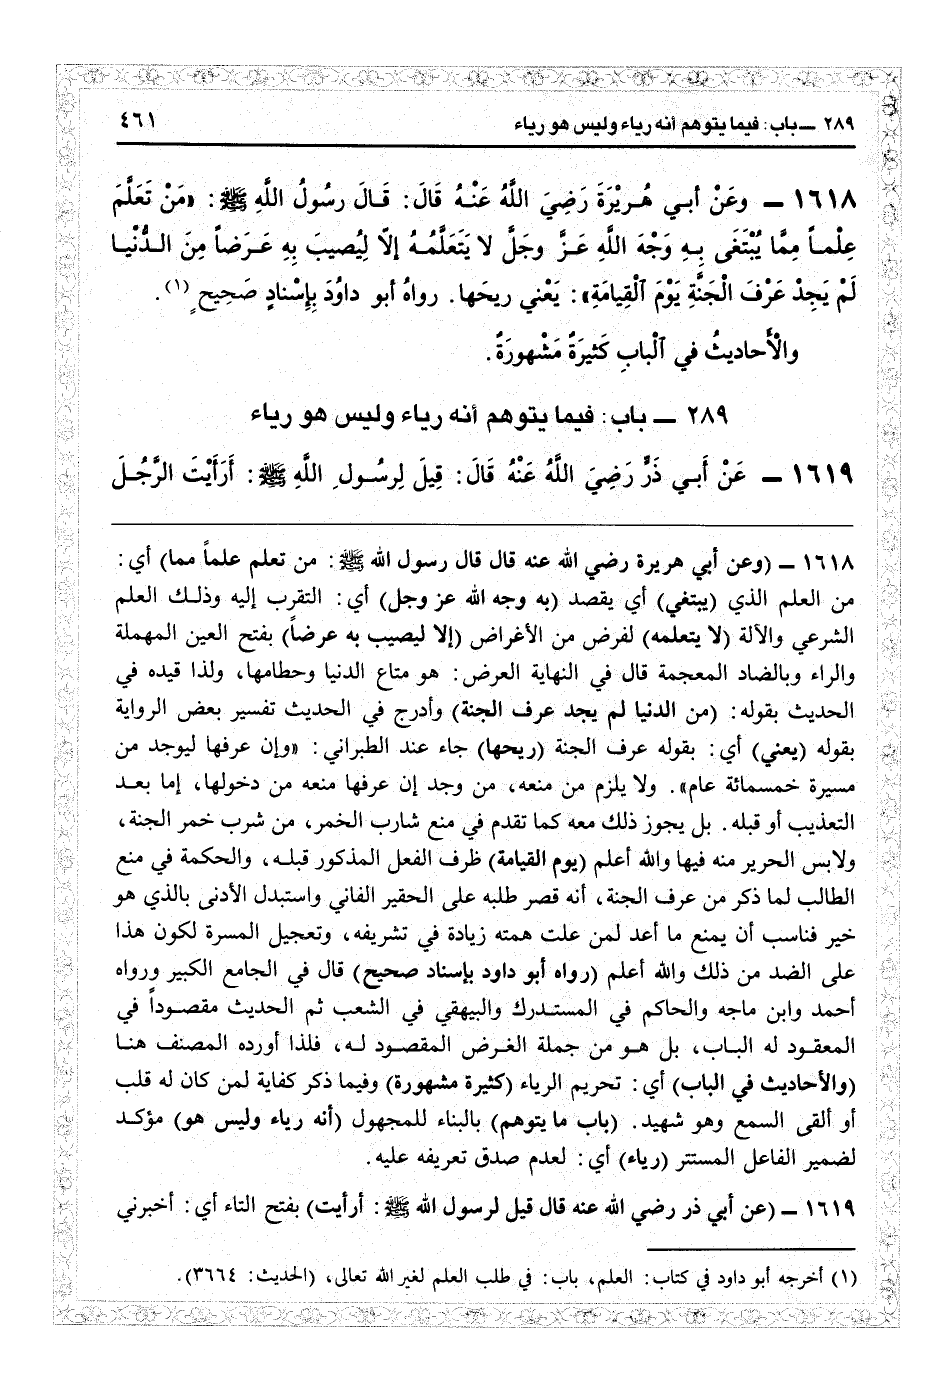 ٢٨٩ ــ باب: فيما يتوهم أنه رياء وليس هو رياء
٤٦١
١٦١٨ ــ وعَنْ أبـي هُـرَيْرَةَ رَضِيَ اللَّهُ عَنْـهُ قَالَ: قَـالَ رسُولُ اللَّهِ ﷺ: «مَنْ تَعَلَّمَ
عِلْمـاً مِمَّا يُبْتَغَى بِـهِ وَجْهُ اللَّهِ عَـزَّ وجَلَّ لا يَتَعَلَّمُـهُ إلّا لِيُصيبَ بِهِ عَـرَضاً مِنَ الـدُّنْيـا
لَمْ يَجِدْ عَرْفَ الْجَنَّةِ يَوْمَ ٱلْقِيامَةِ»: يَعْني ريحَها. رواهُ أبو داوُدَ بِإِسْنادٍ صَحِيحٍ(١).
والْأَحاديثُ في ٱلْبابِ كَثيرَةٌ مَشْهورَةٌ.
٢٨٩ ــ باب: فيما يتوهم أنه رياء وليس هو رياء
١٦١٩ ــ عَنْ أَبـي ذَرٍّ رَضِيَ اللَّهُ عَنْهُ قَالَ: قِيلَ لِرسُـولِ اللَّهِ ﷺ: أَرَأَيْتَ الرَّجُـلَ
١٦١٨ ــ (وعن أبي هريرة رضي الله عنه قال قال رسول الله ﷺ: من تعلم علماً مما) أي:
من العلم الذي (يبتغي) أي يقصد (به وجه الله عز وجل) أي: التقرب إليه وذلـك العلم
الشرعي والآلة (لا يتعلمه) لفرض من الأغراض (إلا ليصيب به عرضاً) بفتح العين المهملة
والراء وبالضاد المعجمة قال في النهاية العرض: هو متاع الدنيا وحطامها، ولذا قيده في
الحديث بقوله: (من الدنيا لم يجد عرف الجنة) وأدرج في الحديث تفسير بعض الرواية
بقوله (يعني) أي: بقوله عرف الجنة (ريحها) جاء عند الطبراني: «وإن عرفها ليوجد من
مسيرة خمسمائة عام». ولا يلزم من منعه، من وجد إن عرفها منعه من دخولها، إما بعـد
التعذيب أو قبله. بل يجوز ذلك معه كما تقدم في منع شارب الخمر، من شرب خمر الجنة،
ولابس الحرير منه فيها والله أعلم (يوم القيامة) ظرف الفعل المذكور قبلـه، والحكمة في منع
الطالب لما ذكر من عرف الجنة، أنه قصر طلبه على الحقير الفاني واستبدل الأدنى بالذي هو
خير فناسب أن يمنع ما أعد لمن علت همته زيادة في تشريفه، وتعجيل المسرة لكون هذا
على الضد من ذلك والله أعلم (رواه أبو داود بإسناد صحيح) قال في الجامع الكبير ورواه
أحمد وابن ماجه والحاكم في المستدرك والبيهقي في الشعب ثم الحديث مقصـوداً في
المعقـود له البـاب، بل هـو من جملة الغـرض المقصـود لـه، فلذا أورده المصنف هنـا
(والأحاديث في الباب) أي: تحريم الرياء (كثيرة مشهورة) وفيما ذكر كفاية لمن كان له قلب
أو ألقى السمع وهو شهيد. (باب ما يتوهم) بالبناء للمجهول (أنه رياء وليس هو) مؤكـد
لضمير الفاعل المستتر (رياء) أي: لعدم صدق تعريفه عليه.
١٦١٩ ــ (عن أبي ذر رضي الله عنه قال قيل لرسول الله ﷺ: أرأيت) بفتح التاء أي: أخبرني
(١) أخرجه أبو داود في كتاب: العلم، باب: في طلب العلم لغير الله تعالى، (الحديث: ٣٦٦٤).